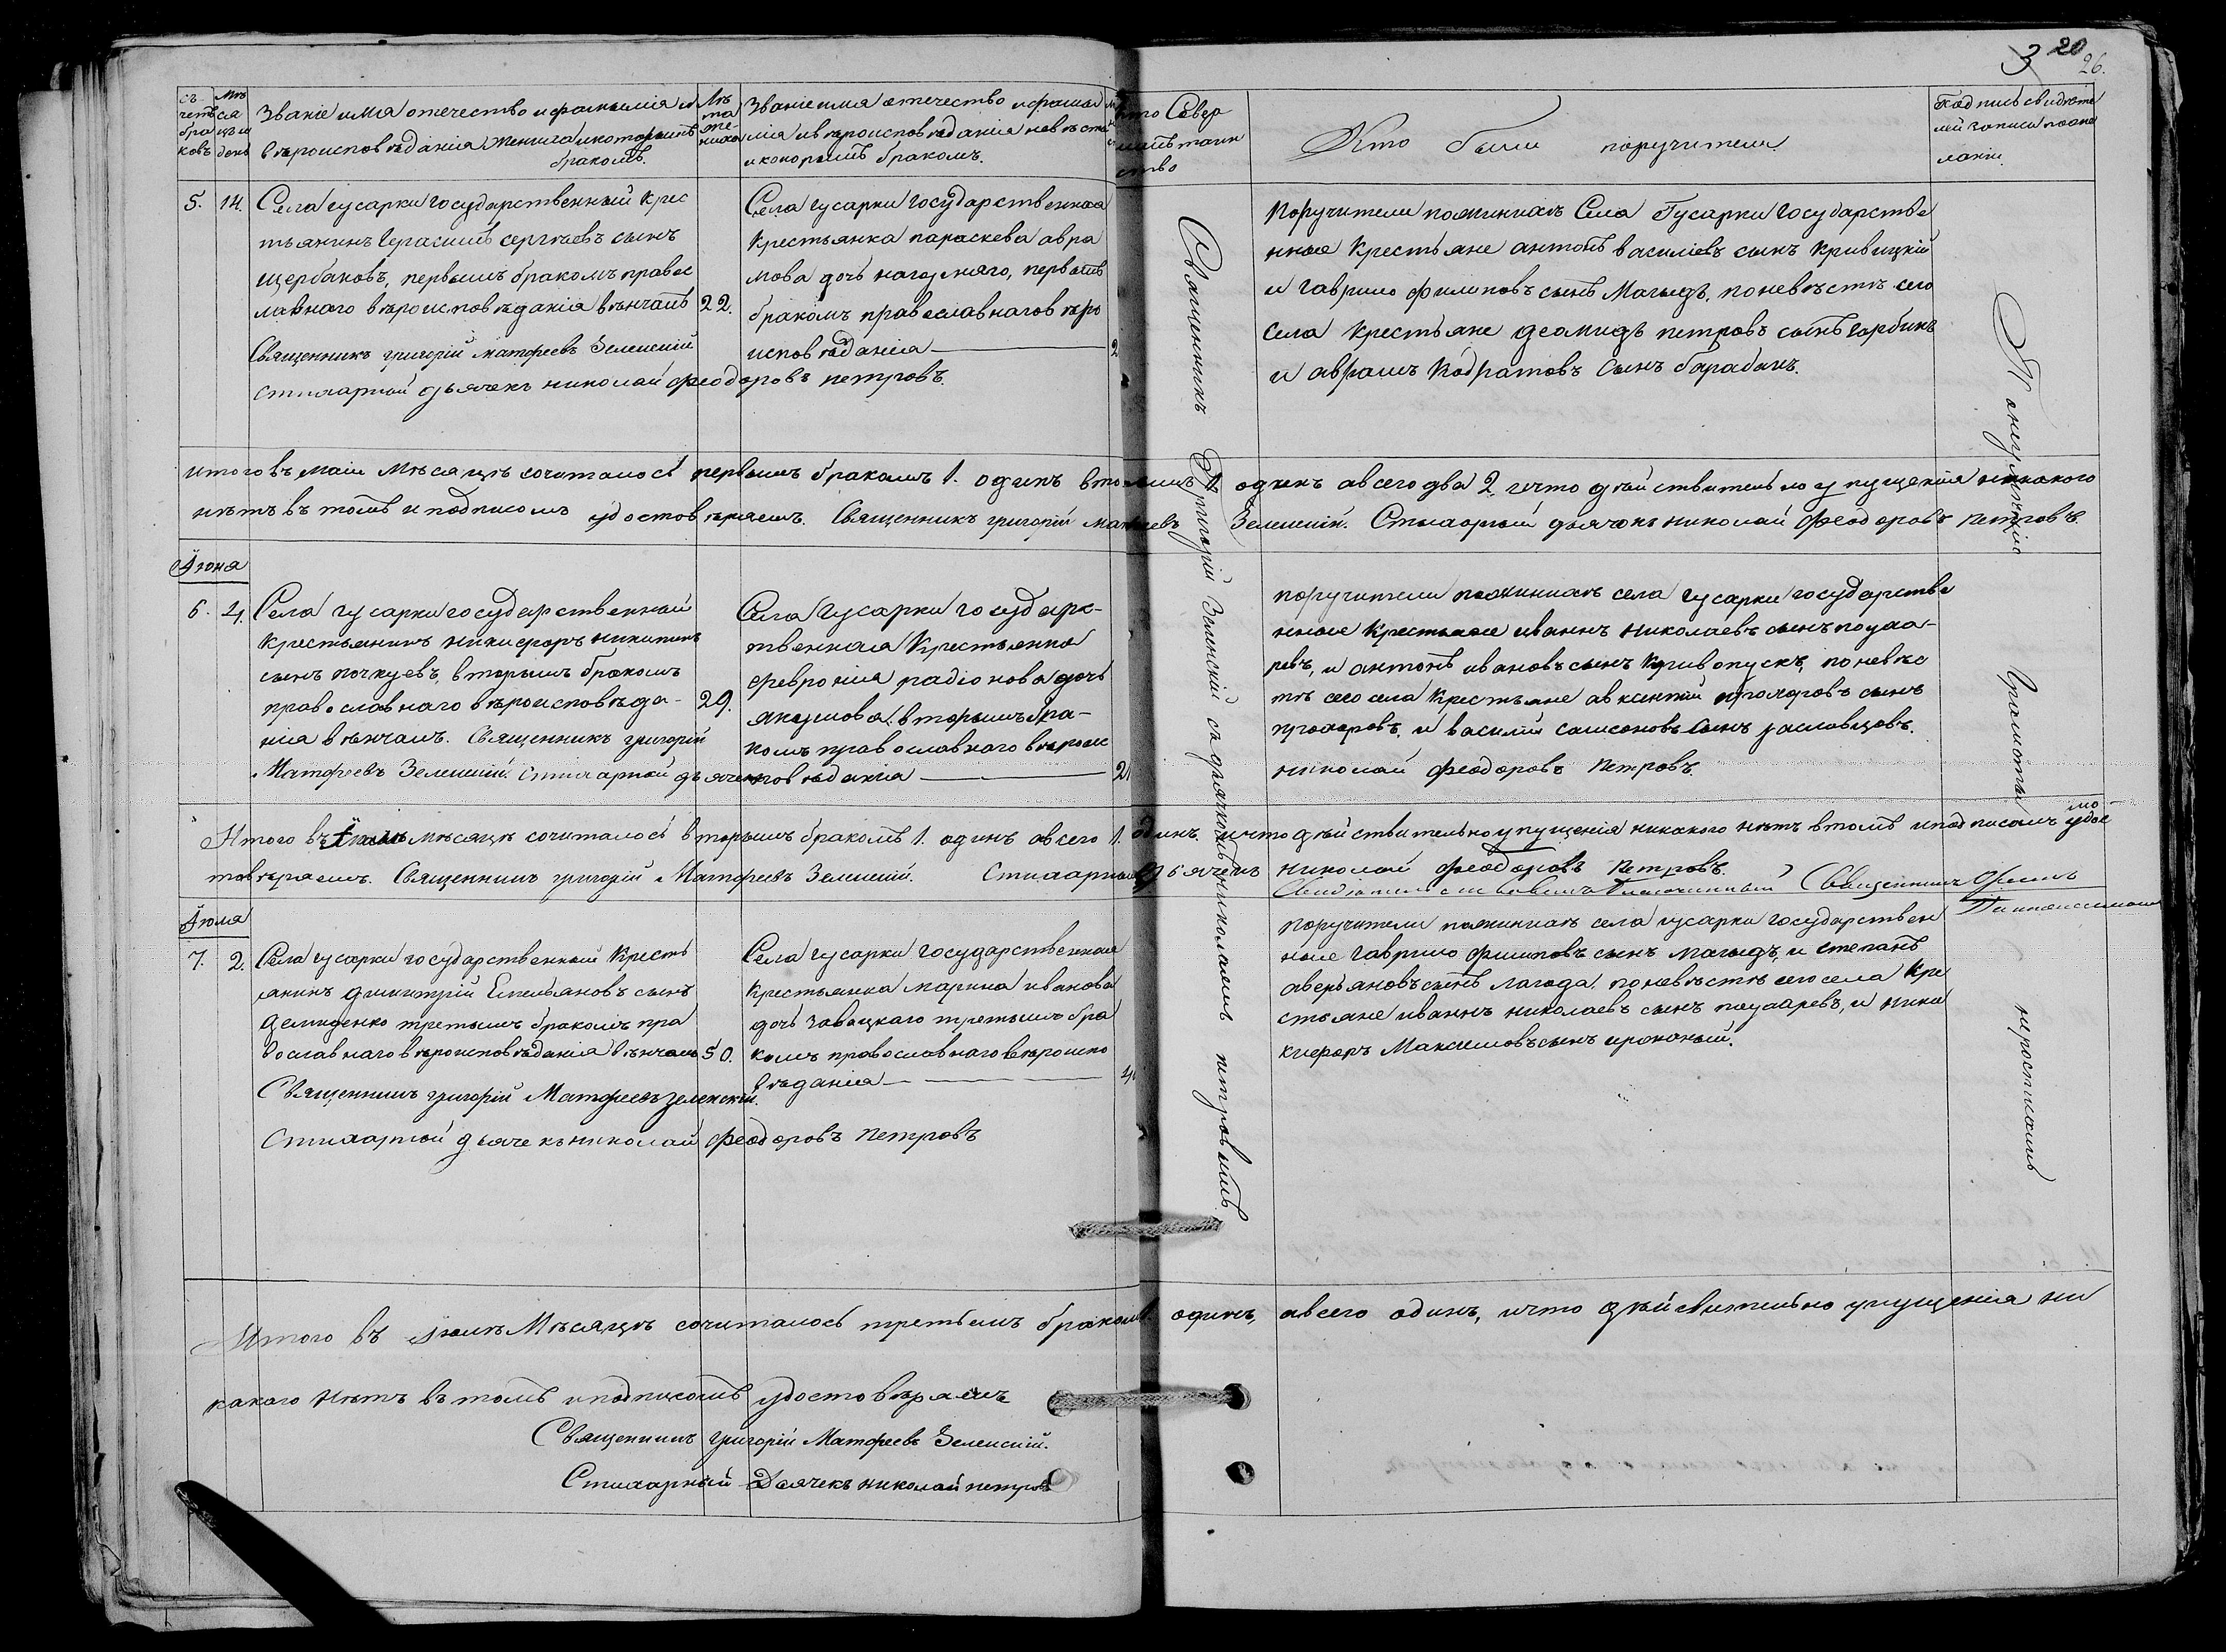 3 20 26.
Счетъ браковъ
Мѣсяцъ и день
Званіе имя отечество и фамилія и
вѣроисповѣданія жениха и которымъ
бракомъ.
Лѣта жениха
Званіе имя отечество и фами
лія и вѣроисповѣданія невѣсты
и которымъ бракомъ.
Кто совер
шалъ таин
ство
Кто были поручители
Подпись свидѣте
лей записи по же
ланію.
5. 14.
Села гусарки государственный крес
тьянинъ герасимъ сергѣевъ сынъ
щербаковъ, первымъ бракомъ правос
лавнаго вѣроисповѣданія вѣнчалъ
Священникъ григорій матфеевъ Зеленскій
стихарный дьячекъ николай феодоровъ петровъ.
22.
Села гусарки государственная
крестьянка параскева авра
мова дочь нагорняго, первымъ
бракомъ православнаго вѣро
исповѣданія
2
Поручители по женихѣ Села Гусарки государстве
нные крестьяне антонъ василіевъ сынъ кривицкій
и гаврило филиповъ сынъ Магыдъ, по невѣстѣ сего
села крестьяне деомидъ петровъ сынъ горбикъ
и аврамъ кодратовъ сынъ барабанъ.
итого въ маіи мѣсяцѣ сочиталось первымъ бракомъ 1. одинъ вторымъ 1 одинъ а всего два 2, и что дѣйствительно упущенія никакого
нѣтъ въ томъ и подписомъ удостовѣряемъ. Священникъ григорій матфеевъ Зеленскій. Стихарный дьячокъ николай феодоровъ петровъ.
Іюня
6. 4.
Села гусарки государственный
крестьянинъ никифоръ никитинъ
сынъ почкуевъ, вторымъ бракомъ
православнаго вѣроисповѣда-
нія вѣнчалъ. Священникъ григорій
Матфеевъ Зеленскій. стихарной дьячекъ
29.
Села гусарки государс-
твенная крестьянка
февронія радіонова дочь
якушова. вторымъ бра-
комъ православнаго вѣроис
повѣданія
2
поручители по женихѣ села гусарки государстве
нные крестьяне иванъ николаевъ сынъ
ревъ, и антонъ ивановъ сынъ кривопускъ, по невѣс
тѣ сего села крестьяне авксентій прохоровъ сынъ
прохоровъ, и василій самсоновъ сынъ заславцовъ.
николай феодоровъ петровъ.
Итого въ Іюнѣ мѣсяцѣ сочиталось вторымъ бракомъ 1. одинъ а всего 1. одинъ. и что дѣйствительно упущенія никакого нѣтъ в томъ и подписомъ удос
товѣряемъ. Священникъ григорій Матфеевъ Зеленскій. Стихарный дьячекъ николай феодоровъ петровъ.
Благочинный Священникъ
Іюля
7. 2.
Села гусарки государственный кресть
янинъ димитрій Емельяновъ сынъ
демиденко третьимъ бракомъ пра
вославнаго вѣроисповѣданія вѣнчалъ
Священникъ григорій Матфеевъ зеленскій.
Стихарной дьячекъ николай феодоровъ петровъ
50.
Села гусарки государственная
крестьянка марина иванова
дочь завацкаго третьимъ бра
комъ православнаго вѣроиспо
вѣданія
4
поручители по женихѣ села гусарки государствен
ные гаврило филиповъ сынъ магыдъ, и степанъ
аверьяновъ сынъ лагода. по невѣстѣ сего села кре
стьяне иванъ николаевъ сынъ и ники
кифоръ Максимовъ сынъ
Священникъ Григорій Зеленскій съ дьячкомъ николаемъ петровымъ.
По неумѣнію грамоты неросписались
Итого въ Іюлѣ Мѣсяцѣ сочиталось третьимъ бракомъ одинъ, а всего одинъ, и что дѣйствительно упущенія ни
какого нѣтъ въ томъ и подписомъ удостовѣряемъ
Священникъ григорій Матфеевъ Зеленскій.
Стихарный Дьячекъ николай петровъ